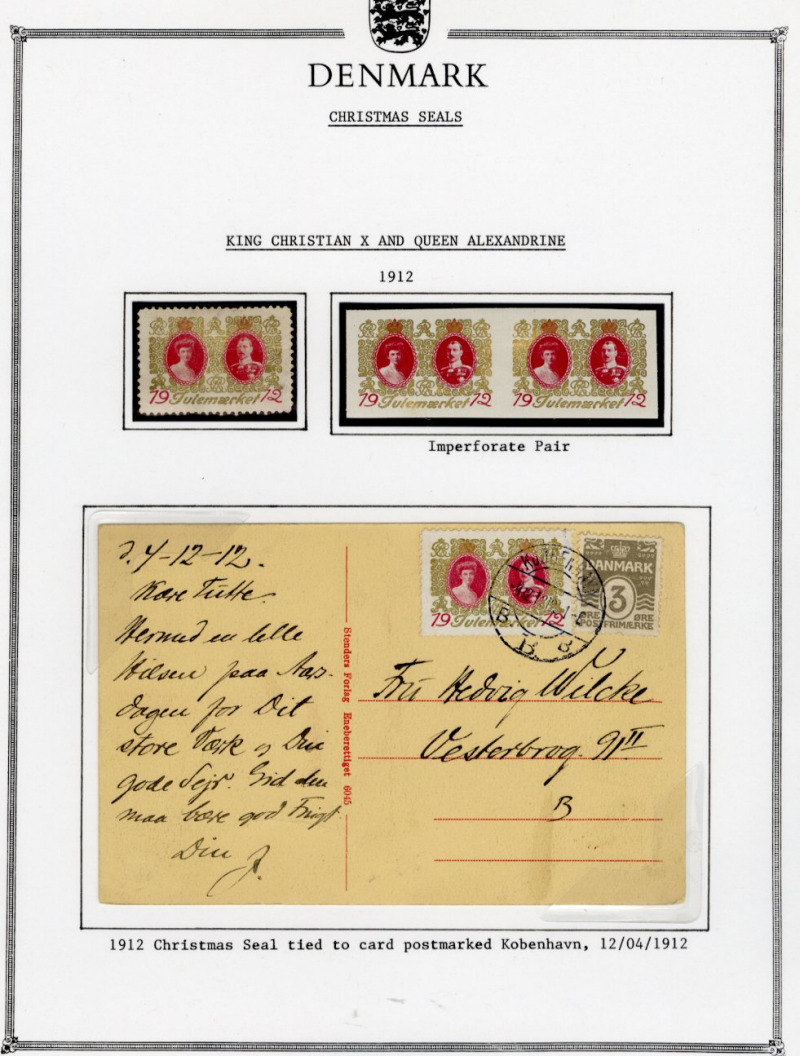 DENMARK
CHRISTMAS SEALS
KING CHRISTIAN X AND QUEEN ALEXANDRINE
1912
19 Julemærket 12
19 Julemærket 12
19 Julemærket 12
Imperforate Pair
d. 4-12-12.
Kære Tutte.
Hermed en lille
Hilsen paa Aars-
dagen for Dit
store Værk og Din
gode Sejr. Gid den
maa bære god Frugt.
Din J.
Stenders Forlag Eneberettiget 6045
19 Julemærket 12
DANMARK
3
ØRE ØRE
POSTFRIMÆRKE
B B
Fru Hedvig Wilcke
Vesterbrog. 91 II
B
1912 Christmas Seal tied to card postmarked Kobenhavn, 12/04/1912